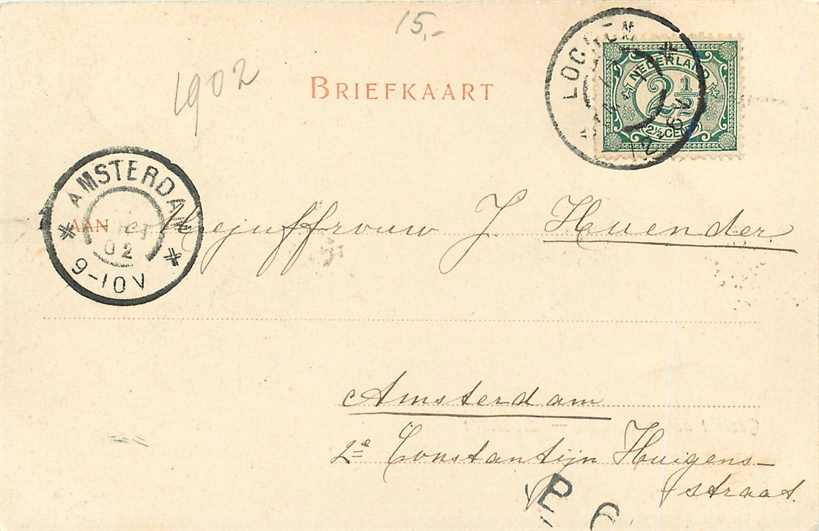 15,-
1902
BRIEFKAART
LOCHEM
NEDERLAND
2½
(2½CENT)
AMSTERDAM
02
9-10V
AAN Mejuffrouw J. Huender.
Amsterdam
2e Constantijn Huigens-
straat.
P 6